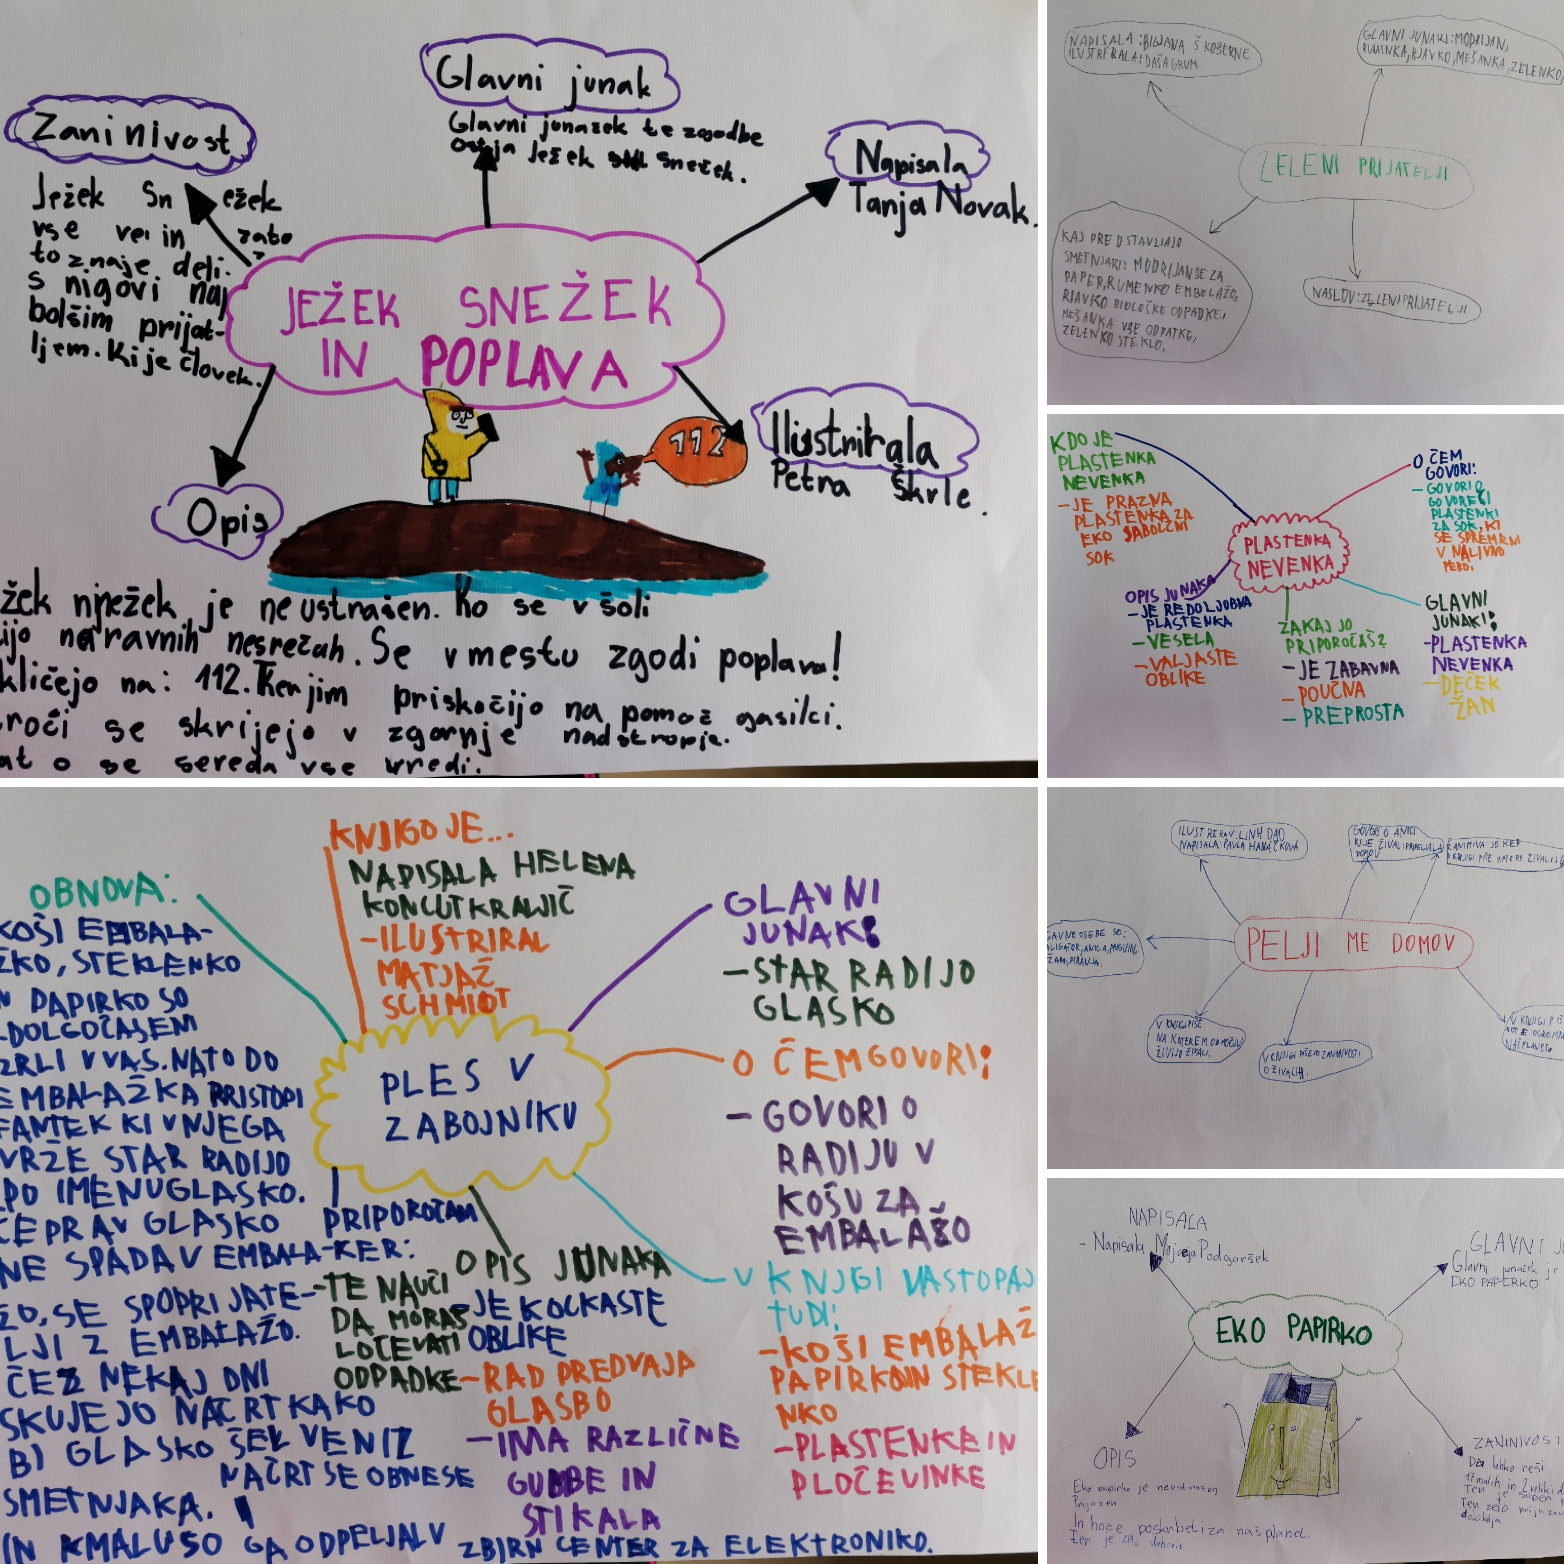 Glavni junak
Glavni junazek te zgodbe
ježek sneżek.
Zani nivost
Ježek Sn ežek
vse ve in zato
to znaje deli.
s nigovi naj
bolšim prijat-
ljem. Ki je človek.
Napisala
Tanja Novak.
JEŽEK SNEŽEK
IN POPLAVA
112
Ilustrirala
Petra Škrle.
Opis
žek nježek je neustrašen. Ko se v šoli
ijo naravnih nesrečah. Se v mestu zgodi poplava!
kličejo na: 112. Ker jim priskočijo na pomoč gasilci.
roči se skrijejo v zgornje nadstropje.
at o se sereda vse vredi.
NAPISALA: BILJANA ŠKOBERNE
ILUSTRERALA: DAŠA GRUM
GLAVNI JUNAKI: MODRIJAN,
RUMENKA, RJAVKO, MEŠANKA, ZELENKO,
ZELENI PRIJATELJI
KAJ PREDSTAVLJAJO
SMETNJAKI: MODRIJAN JE ZA
PAPER, RUMENKO EMBELAŽO,
RJAVKO BIOLOŠKE ODPADKE,
MEŠANKA VSE ODPATKE,
ZELENKO STEKLO.
NASLOV: ZELENI PRIJATELJI
KDO JE
PLASTENKA
NEVENKA
-JE PRAZNA
PLASTENKA ZA
EKO
SOK
O ČEM
GOVORI:
- GOVORI O
GOVOREČI
PLASTENKI
ZA SOK, KI
SE SPREMENI
V NALIVNO
PERO.
PLASTENKA
NEVENKA
OPIS JUNAKA
- JE REDOLJUBNA
PLASTENKA
- VESELA
- VALJASTE
OBLIKE
ZAKAJ JO
PRIPOROČAŠ?
- JE ZABAVNA
- POUČNA
- PREPROSTA
GLAVNI
JUNAKI:
-PLASTENKA
NEVENKA
-DEČEK
ŽAN
OBNOVA:
KOŠI EMBALA-
ŽKO, STEKLENKO
N PAPIRKO SO
DOLGOČASENI
ZRLI V VAS. NATO DO
EMBALAŽKA PRISTOPI
FANTEK KI V NJEGA
VRŽE STAR RADIJO
PO IMENU GLASKO.
ČEPRAV GLASKO
NE SPADA V EMBALA-
ŽO, SE SPOPRIJATE-
LJI Z EMBALAŽO.
ČEZ NEKAJ DNI
SKUJEJO NAČRT KAKO
BI GLASKO ŠEL VEN IZ
SMETNJAKA. NAČRT SE OBNESE
IN KMALU SO GA ODPELJAL V ZBIRN CENTER ZA ELEKTRONIKO.
KNJIGO JE...
NAPISALA HELENA
KONCUT KRALJIČ
-ILUSTRIRAL
MATJAŽ
SCHMIDT
GLAVNI
JUNAK:
-STAR RADIJO
GLASKO
PLES V
ZABOJNIKU
O ČEM GOVORI:
- GOVORI O
RADIJU V
KOŠU ZA
EMBALAŽO
PRIPOROČAM
KER:
-TE NAUČI
DA MORAŠ
LOČEVATI
ODPADKE
OPIS JUNAKA
-JE KOCKASTE
OBLIKE
-RAD PREDVAJA
GLASBO
-IMA RAZLIČNE
GUMBE IN
STIKALA
V KNJIGI NASTOPAJ
TUDI:
-KOŠI EMBALAŽ
PAPIRKO IN STEKLE
NKO
-PLASTENKE IN
PLOČEVINKE
ILUSTRERAV: LINH DAO
NAPISALA: PAVLA HANÁČKOVÁ
GOVORI O ANICI
KI JE ŽIVALI PRIPELJALA
DOMOV
ZANIMIVA JE KER
V KNJIGI PIŠE KATERE ŽIVALI S
GAVNE OSEBE SO:
ALIGATOR, ANICA, PINGVIN,
ŽABA, PIRANJA.
PELJI ME DOMOV
V KNJIGI PIŠE
NA KATEREM OBMOČJU
ŽIVIJO ŽIVALI.
V KNJIGI PIŠEJO ZANIMIVOSTI
O ŽIVALIH.
V KNJIGI PIŠ
NAŠ PLANET.
NAPISALA
- Napisala Mojceja Podgoršek
GLAVNI J
Glavni junaček je
EKO PAPERKO.
EKO PAPIRKO
OPIS
Eko papirko je neustrašen
Prijazen
In hoče poskrbeti za naš planet.
Ten je zelo
ZANINIVOST
Da lahko reši
17 malih in 2 veliki d
Ten je super
Ten zelo prijazen